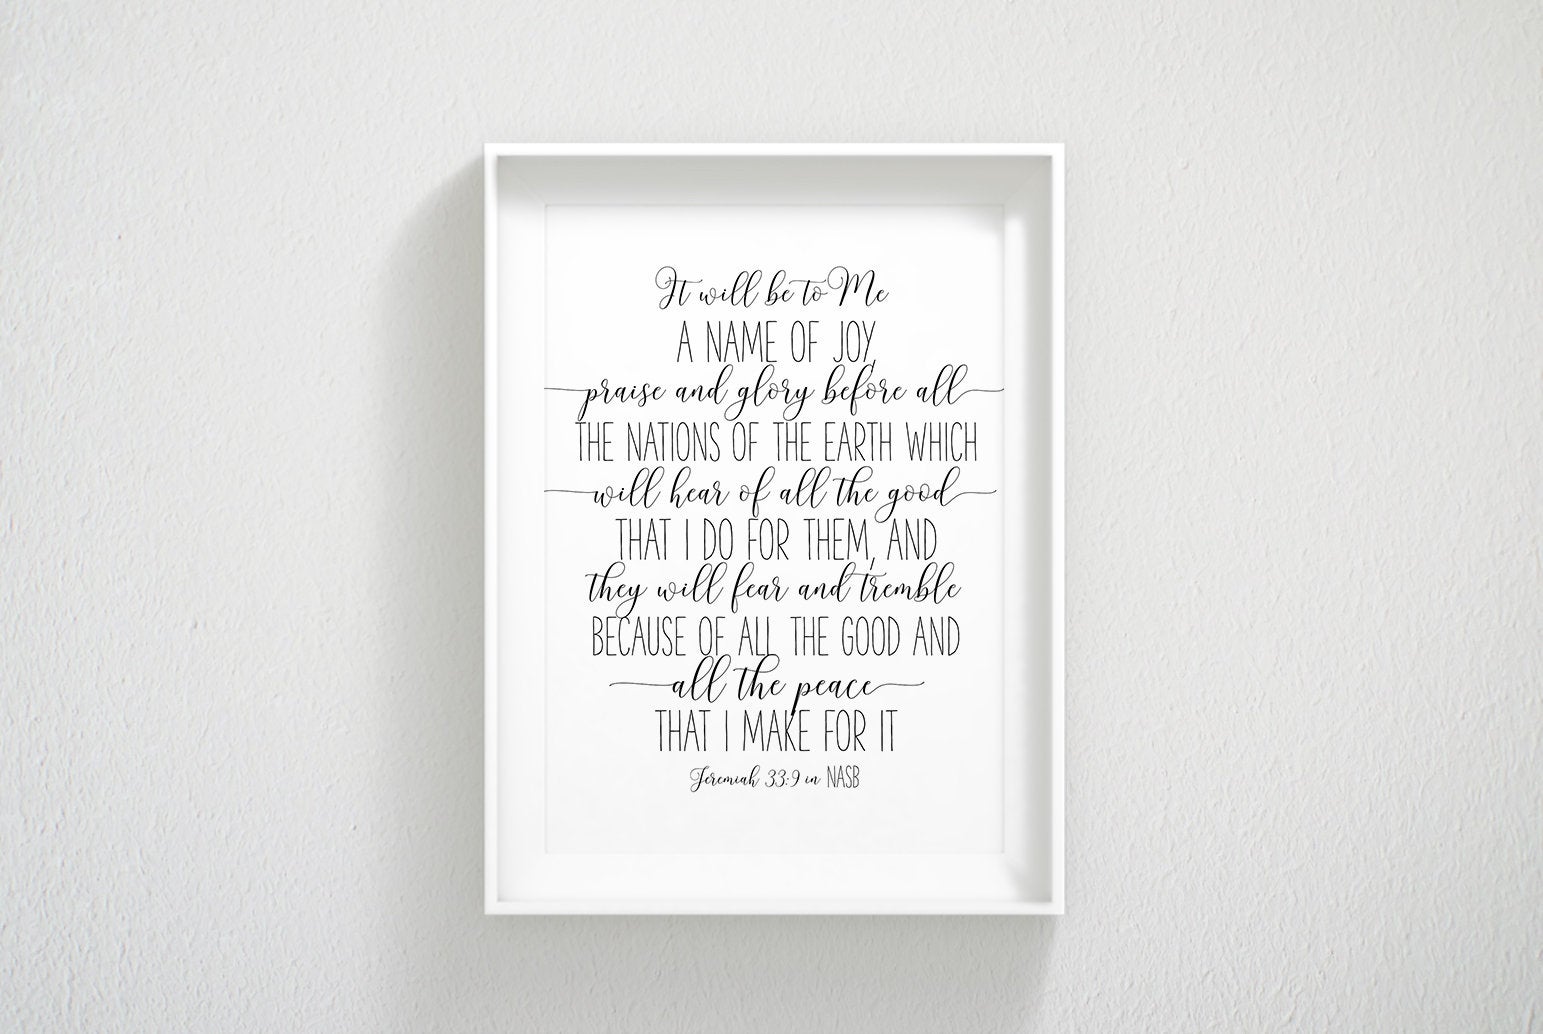 It will be to Me
A NAME OF JOY,
praise and glory before all
THE NATIONS OF THE EARTH WHICH
will hear of all the good
THAT I DO FOR THEM, AND
they will fear and tremble
BECAUSE OF ALL THE GOOD AND
all the peace
THAT I MAKE FOR IT
Jeremiah 33:9 in NASB